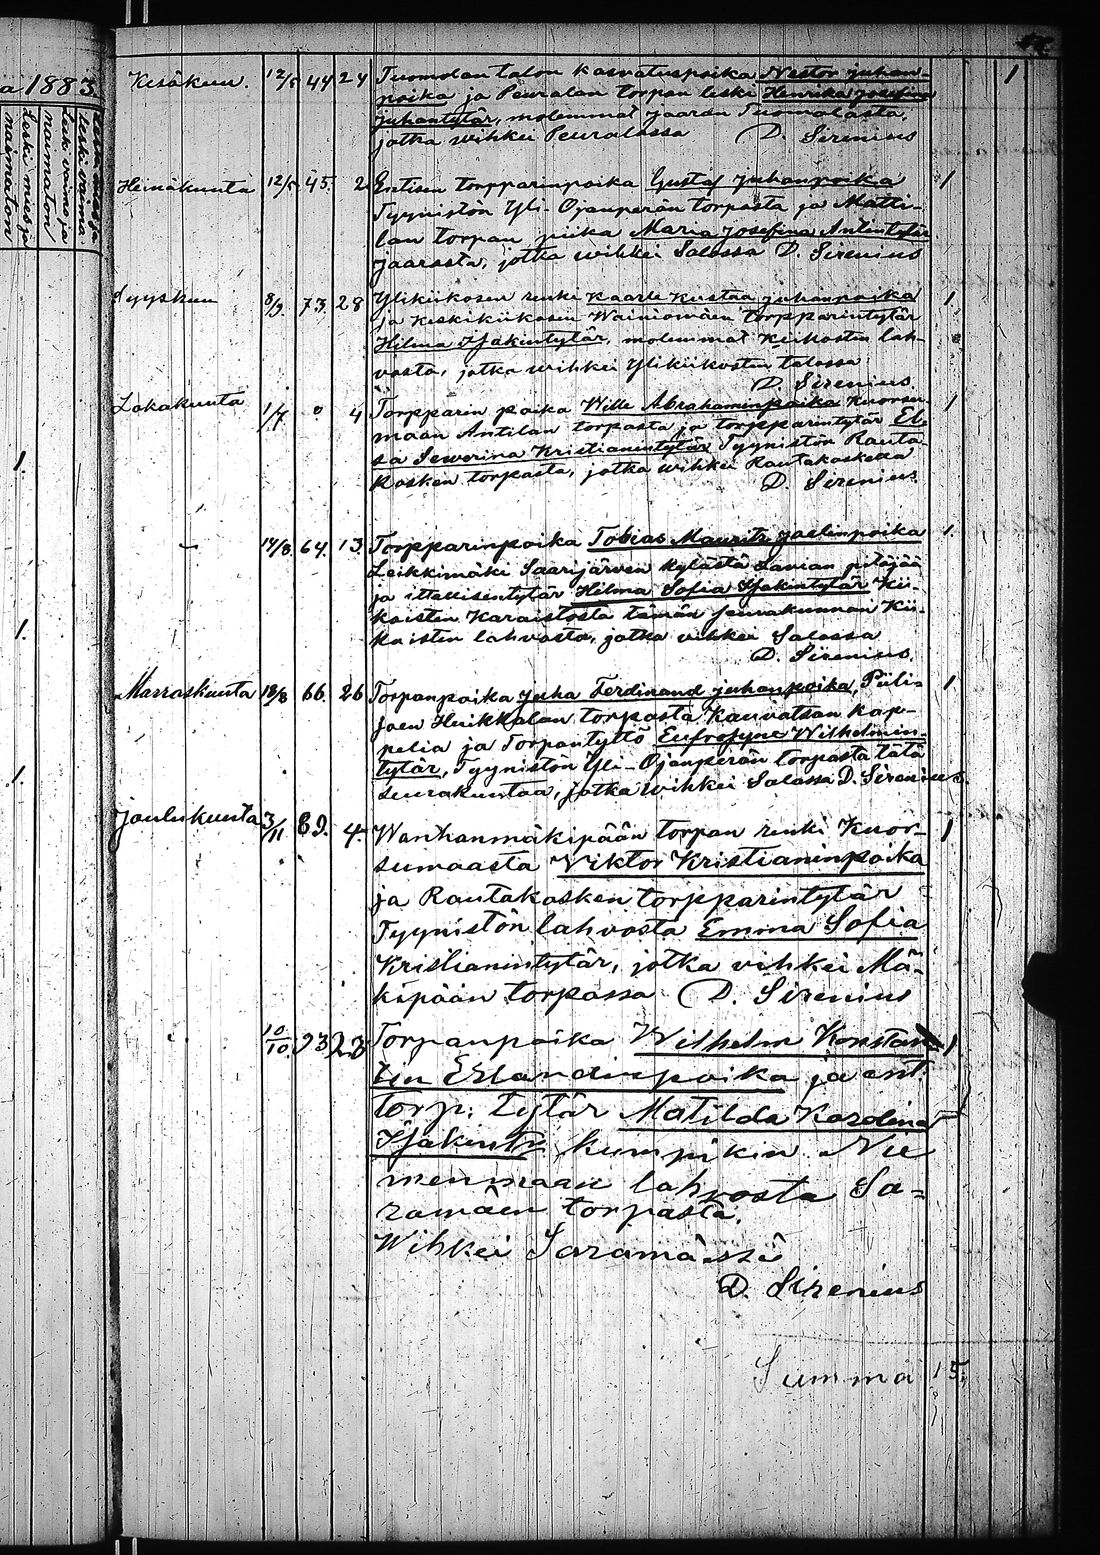 a 1883.
Leski vaimo
Lask. vaimo ja
naimaton
Leski mies ja
naimaton
Kesäkuu. 12/5 44 24 Tuomolan talon kasvatuspoika Nestor Juhan-
poika ja Peuralan torpan leski Henrika Josefina
Juhantytär, molemmat Jaaran Tuomolasta,
jotka wihkei Peuralassa D. Sirenius
1
Heinäkuuta 12/5 45. 2 Entisen torpparinpoika Gustaf Juhanpoika 1
Tyynistön Yli-Ojanperän torpasta ja Matti-
lan torpan piika Maria Josefina Antintytär
Jaarasta, jotka wihkei Salossa D. Sirenius
Syyskuu 8/9. 73. 28 Ylikiikosen renki Kaarle Kustaa Juhanpoika 1
ja Keskikiikosen Wainiomäen torpparintytär
Hilma Isakintytär, molemmat Kiikosten lah-
vosta, jotka wihkei Ylikiikosten talossa
D. Sirenius.
Lokakuuta 1/7 0 4 Torpparin poika Wille Abrahaminpoika Kuorsu- 1
maan Antilan torpasta ja torpparintytär El-
sa Sewerina Kristianintytär Tyynistön Rauta-
kosken torpasta, jotka wihkei Rautakoskella
D. Sirenius
1.
- 14/8. 64. 13. Torpparinpoika Tobias Maurits Joelinpoika 1.
Leikkimäki Saarijärven kylästä Lavian pitäjää
ja itsellisentytär Hilma Sofia Isakintytär Kii-
koisten Karaistosta tämän seurakunnan Kii-
koisten lahvosta, jotka vihkei Salossa
D. Sirenius.
1.
Marraskuuta 18/8 66. 26 Torpanpoika Juha Ferdinand Juhanpoika, Piili- 1
joen Huikkalan torpasta Kauvatsan kap-
pelia ja Torpantyttö Eufrosyne Wilhelmin-
tytär, Tyynistön Yli-Ojanperän torpasta tätä
seurakuntaa, jotka wihkei Salossa D. Sirenius.
1.
Joulukuuta 3/11 89. 4. Wanhanmäkipään torpan renki Kuor- 1
sumaasta Viktor Kristianinpoika
ja Rautakosken torpparintytär
Tyynistön lahvosta Emma Sofia
Kristianintytär, jotka vihkei Mä-
kipään torpassa D. Sirenius
10/10. 93. 23 Torpanpoika Wilhelm Konstan 1
tin Erlandinpoika ja ent.
torp. tytär Matilda Karolina
Isakintr kumpikin Nie
menmaan lahvosta Sa=
ramäen torpasta.
Wihkei Saramäessä
D. Sirenius
Summa 15.